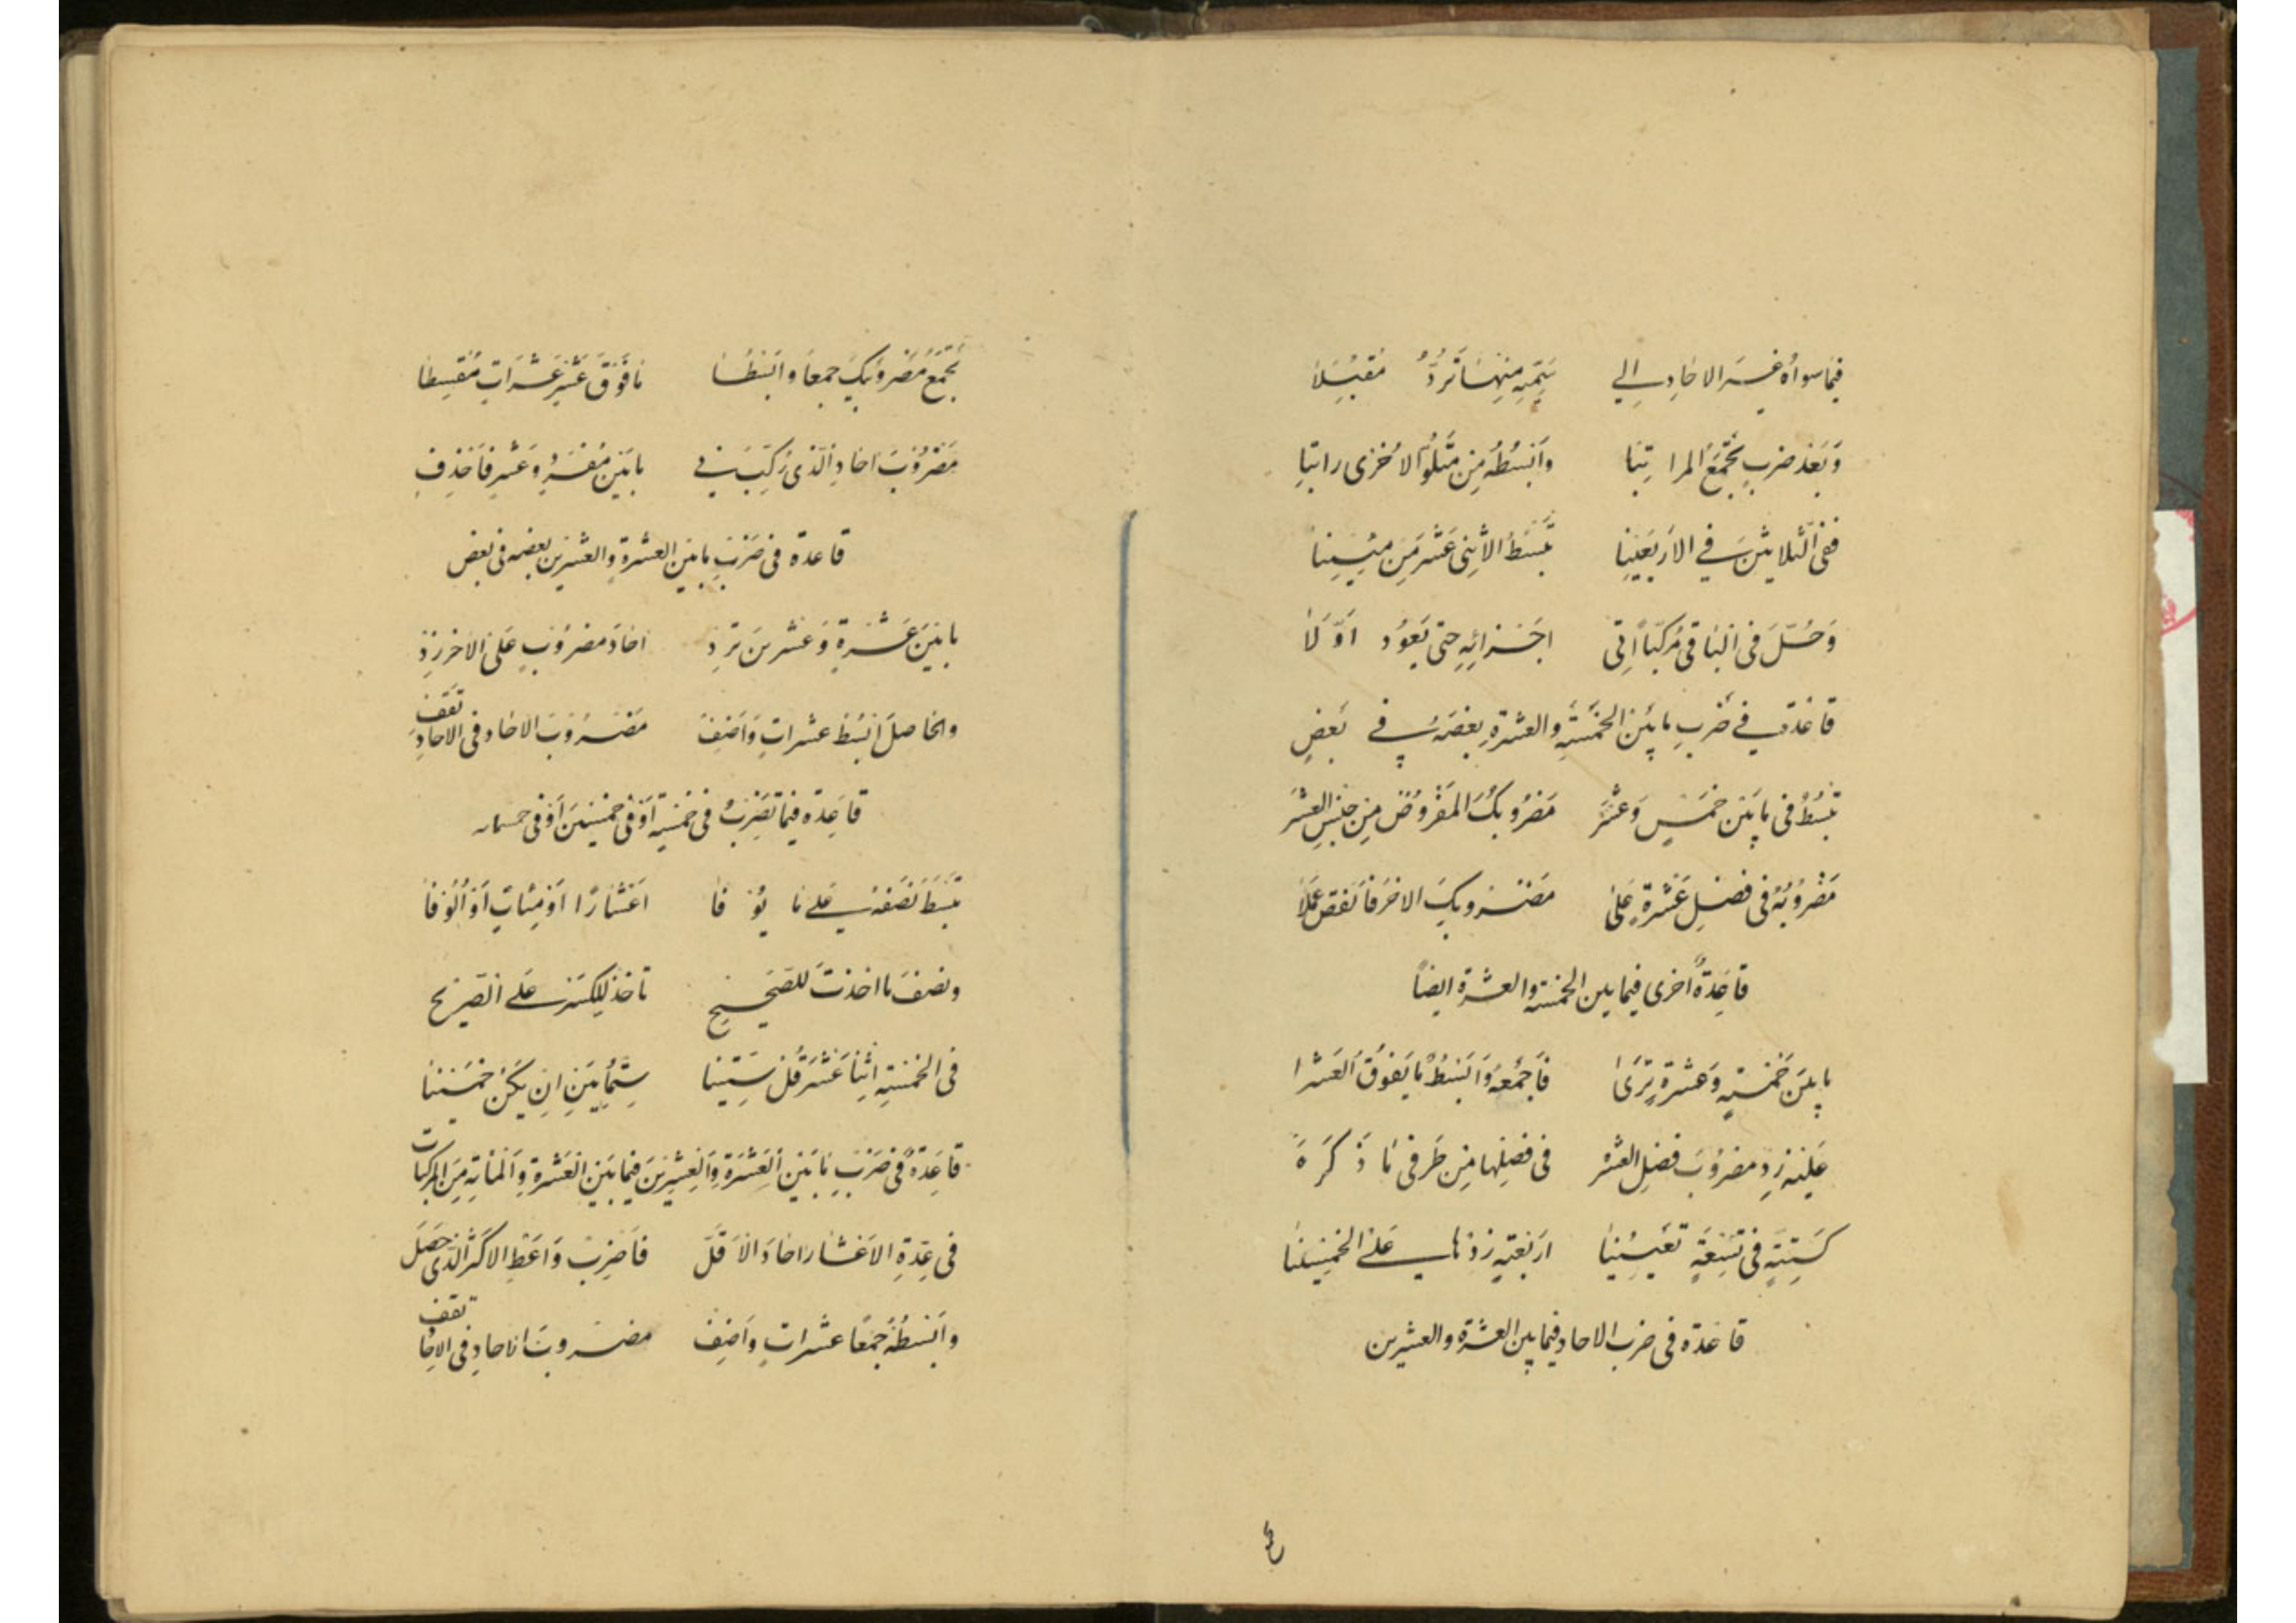 فيما سواه غير الاحاد الي سميه منها ترد مقبلا
وبعد ضرب تجمع المراتبا وابسطه من متلو الاخرى راتبا
ففي الثلاثين في الاربعينا تبسط الاثنى عشر من مئينا
وحُلّ في الباقي مركبا الى اجزائه حتى يعود اوّلا
قاعدة في ضرب ما بين الخمسة والعشرة بعضه في بعض
تبسط في ما بين خمس وعشر مضروبك المفروض من جنس العشر
مضروبه في فضل عشرة على مضروبك الاخر فانقص عملا
قاعدة اخرى فيما بين الخمسة والعشرة ايضاً
ما بين خمسة وعشرة ترى فاجمعه وابسط ما يفوق العشرا
عليه زد مضروب فضل العشر في فضلها من طرفي ما ذكره
كستة في تسعة تعيينا اربعة زدها على الخمسينا
قاعدة في ضرب الاحاد فيما بين العشرة والعشرين
تجمع مضروبيك جمعا وابسطا ما فوق عشر عشرات مقسطا
مضروب احاد الذي ركب في ما بين مفرد وعشر فاحذف
قاعدة في ضرب ما بين العشرة والعشرين بعضه في بعض
ما بين عشرة وعشرين ترد احاد مضروب على الاخر زد
والحاصل ابسط عشرات واضف مضروب الاحاد في الاحاد تقف
قاعدة فيما تضرب في خمسة او في خمسين او في خمسمائه
تبسط نصفه على ما يوفا اعشارا او مئات او الوفا
ونصف ما اخذت للصحيح تاخذ للكسر على التصريح
في الخمسة اثنا عشر قل ستينا ستمايين ان يكن خمسينا
قاعدة في ضرب ما بين العشرة والعشرين فيما بين العشرة والمائة من المركبات
في عدة الاعشار احاد الاقل فاضرب واعط الاكثر الذي حصل
وابسطه جمعا عشرات واضف مضروب الاحاد في الاحاد تقف